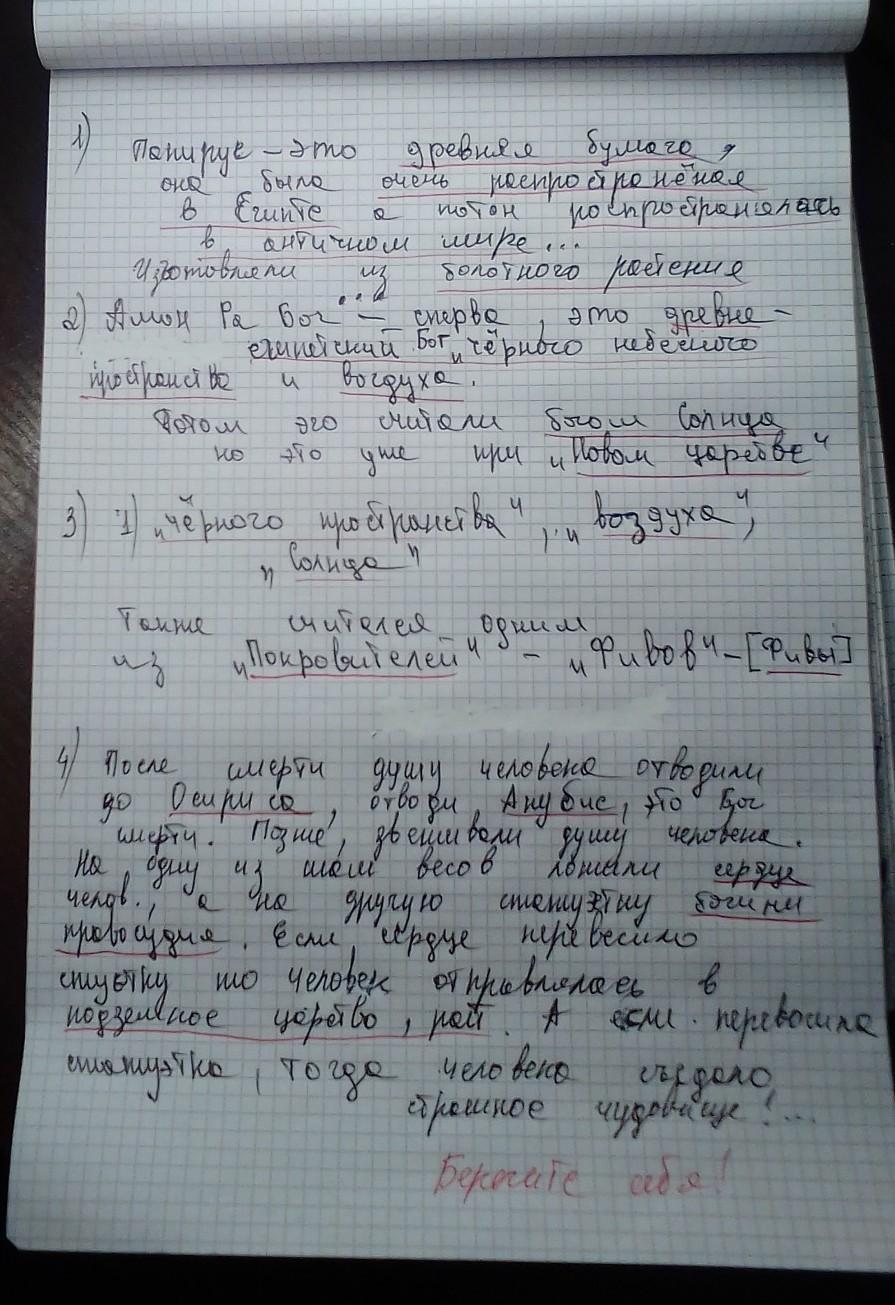 1)
Папирус – это древняя бумага,
она была очень распространёная
в Египте а потом роспространялась
в античном мире...
Изготовляли из болотного растения
2) Амон Ра Бог ... – сперва, это древне-
египетский Бог „чёрного небесного
пространства и воздуха.
Потом эго считали богом Солнца
но это уже при „Новом царстве“
3) 1) „чёрного пространства“, „воздуха“,
„Солнца“
Также считался одним
из „Покровителей“ – „Фивов“ – [Фивы]
4) После смерти душу человека отводили
до Осириса, отводи Анубис, это Бог
смерти. Позже, звешивали душу человека.
На одну из шал весов ложыли сердце
челов., а на другую статуэтку богини
правосудия. Если сердце перевесило
стуэтку то человек отправлялась в
подземное царство, рай. А если перевошила
статуэтка, тогда человека сьедало
страшное чудовище!...
Берегите себя!